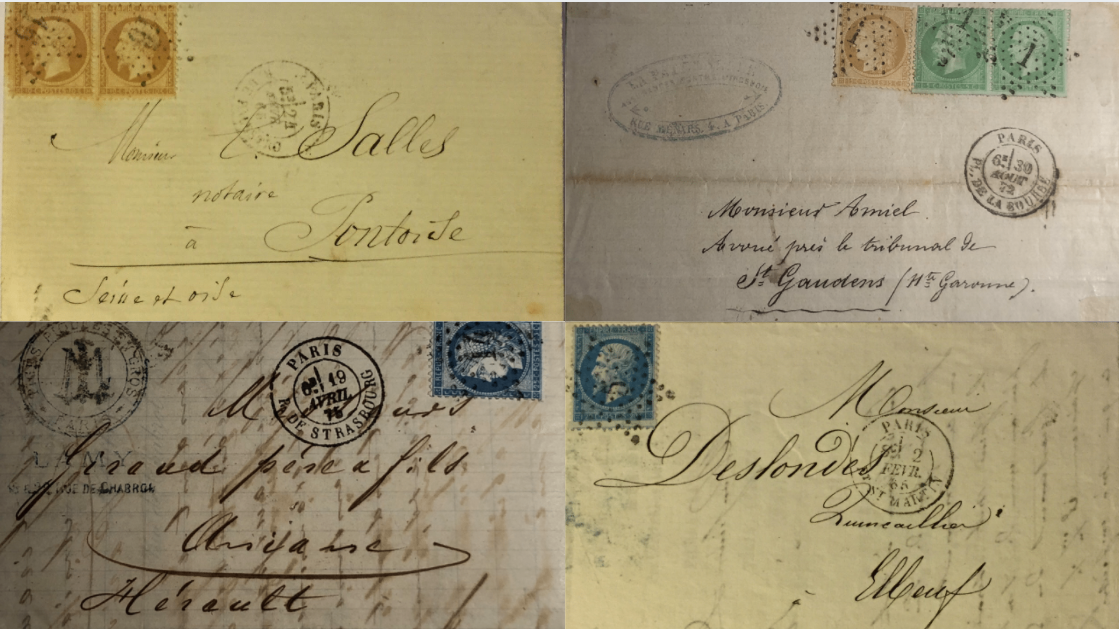 PARIS
Monsieur E Salles
notaire
à
Pontoise
Seine et oise
1
1
RUE A PARIS
PARIS
6E 30
AOUT
72
PL. DE LA BOURSE
Monsieur Amiel
Avoué près le tribunal de
St Gaudens (Hte Garonne).
PARIS
6E 19
AVRIL
75
R. DE STRASBOURG
Messieurs
Giraud père & fils
Aniane
Hérault
RUE DE CHABROL
Monsieur
PARIS
2
FEVR.
65
Deslondes
Quincaillier
Elbeuf